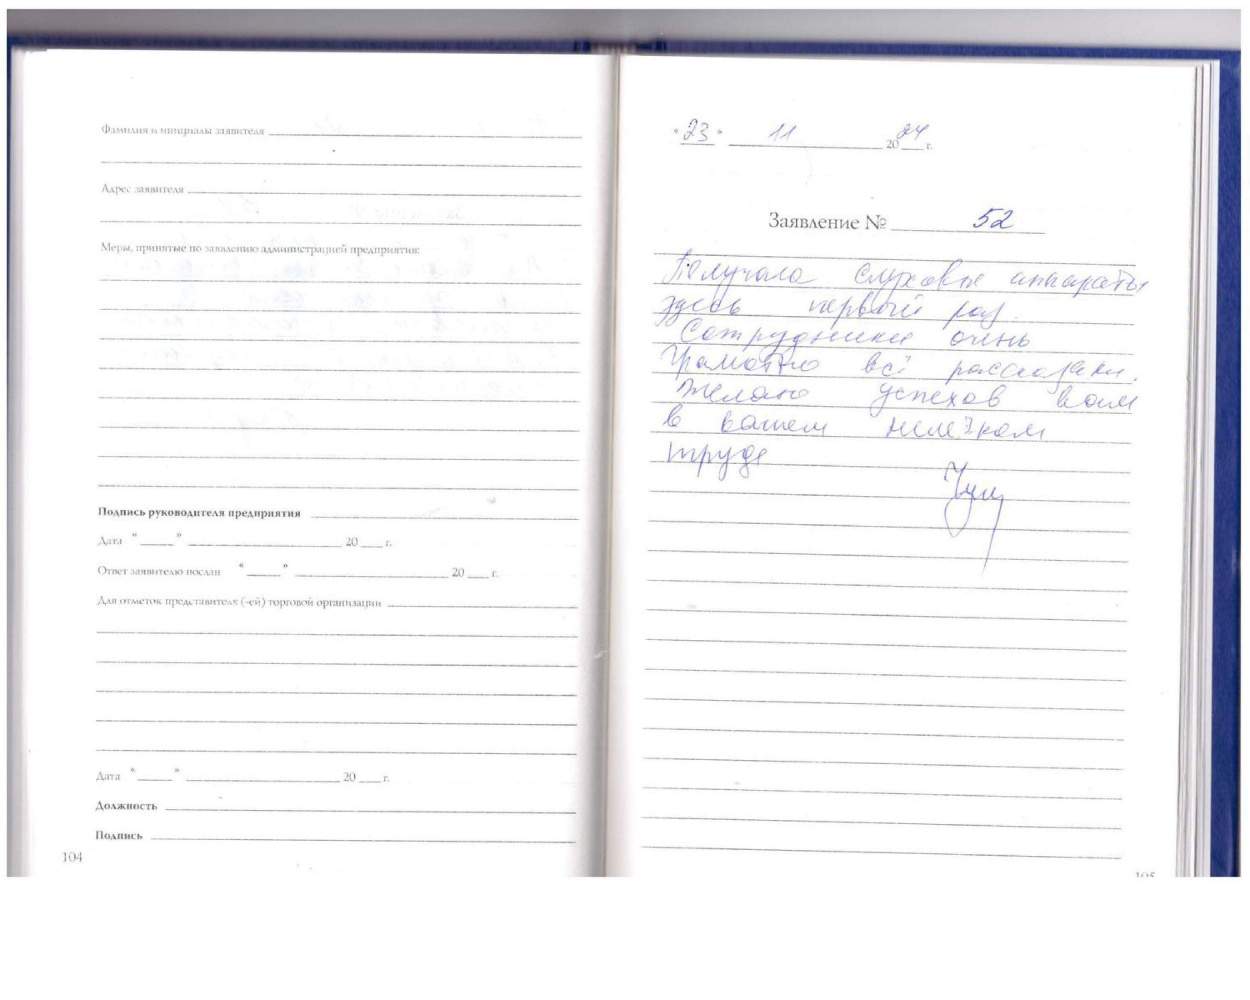 Фамилия и инициалы заявителя
Адрес заявителя
Меры, принятые по заявлению администрацией предприятия:
Подпись руководителя предприятия
Дата " " 20 г.
Ответ заявителю послан " " 20 г.
Для отметок представителя (-ей) торговой организации
Дата " " 20 г.
Должность
Подпись
104
"23" 11 2024 г.
Заявление № 52
Получала слуховые аппараты
здесь первый раз.
Сотрудники очень
грамотно всё рассказали.
Желаю успехов вам
в вашем нелёгком
труде
105